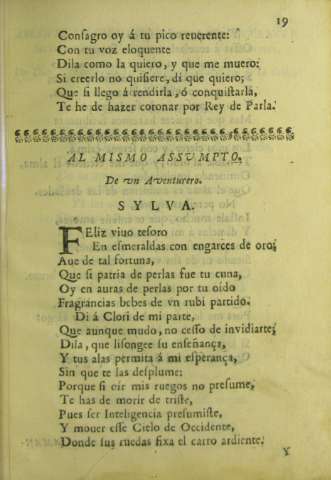 19
Consagro oy á tu pico reuerente:
Con tu voz eloquente
Dila como la quiero, y que me muero:
Si creerlo no quisiere, di que quiero;
Que si llego á rendirla, ó conquistarla,
Te he de hazer coronar por Rey de Parla.
AL MISMO ASSVMPTO,
De vn Aventurero.
SYLVA.
FEliz viuo tesoro
En esmeraldas con engarces de oro;
Aue de tal fortuna,
Que si patria de perlas fue tu cuna,
Oy en auras de perlas por tu oido
Fragrancias bebes de vn rubi partido.
Di á Clori de mi parte,
Que aunque mudo, no cesso de invidiarte;
Dila, que lisongee su enseñança,
Y tus alas permita á mi esperança,
Sin que te las desplume:
Porque si oir mis ruegos no presume,
Te has de morir de triste,
Pues ser Inteligencia presumiste,
Y mouer esse Cielo de Occidente,
Donde sus ruedas fixa el carro ardiente.
Y